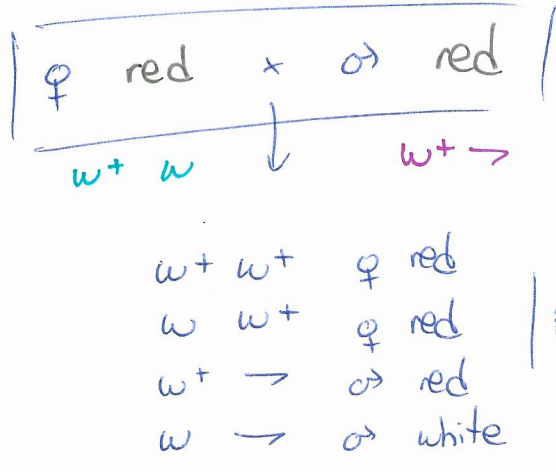 ♀ red x ♂ red
w+ w w+ →
w+ w+ ♀ red
w w+ ♀ red
w+ → ♂ red
w → ♂ white